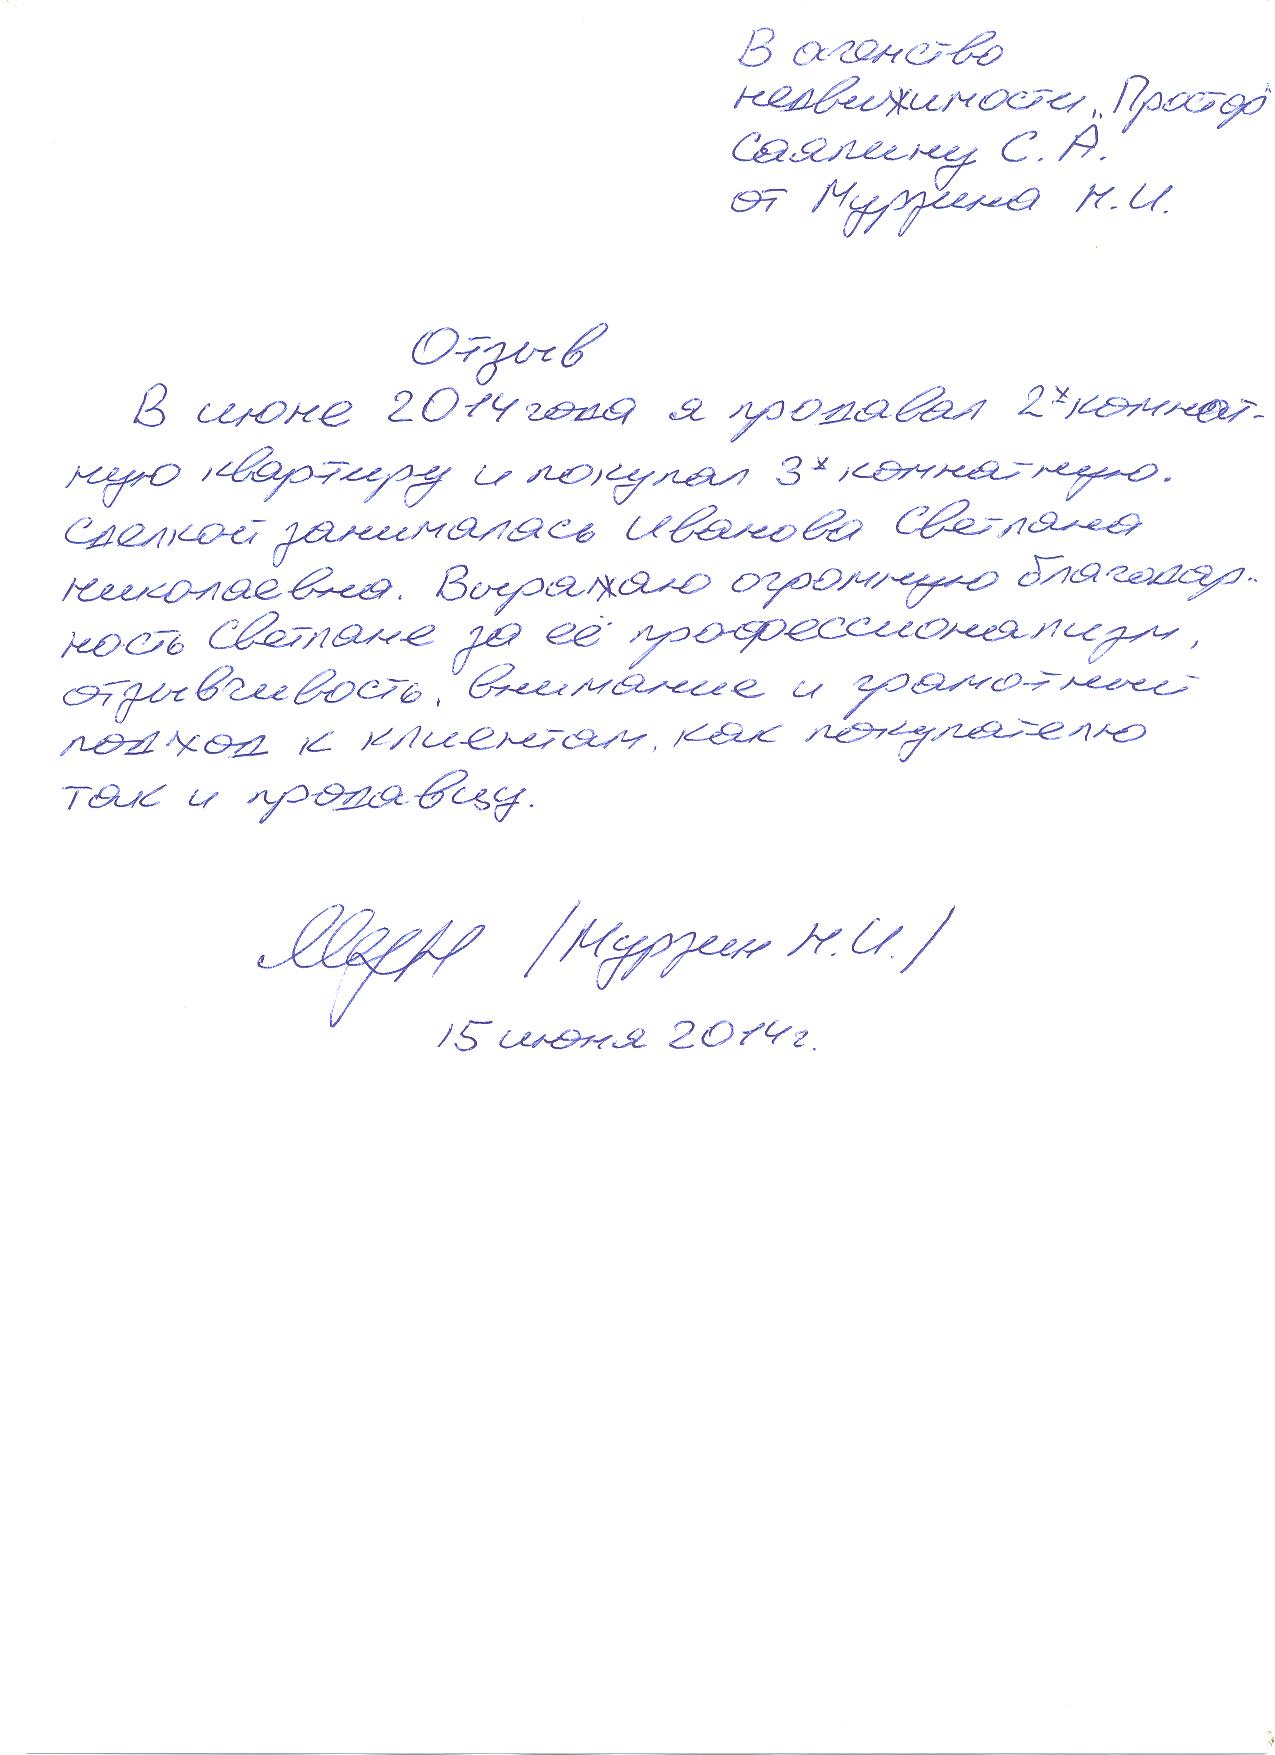 В агенство
недвижимости „Простор"
Саяпину С. А.
от Мурзина Н.И.
Отзыв
В июне 2014 года я продавал 2х комнат-
ную квартиру и покупал 3х комнатную.
Сделкой занималась Иванова Светлана
Николаевна. Выражаю огромную благодар-
ность Светлане за её профессионализм,
отзывчивость, внимание и грамотный
подход к клиентам, как покупателю
так и продавцу.
/Мурзин Н.И./
15 июня 2014 г.